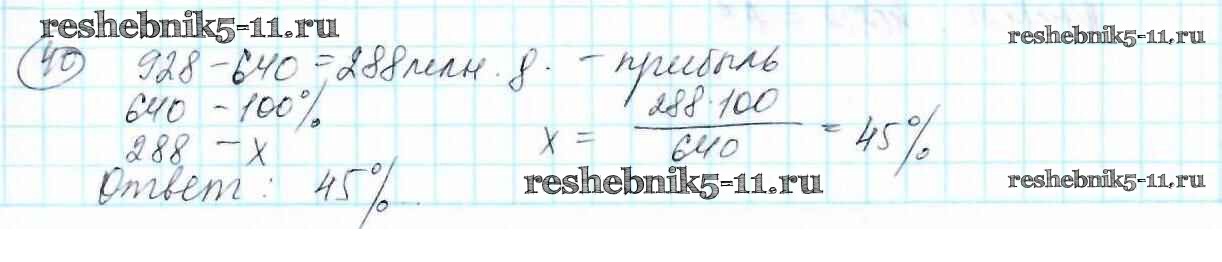 reshebnik5-11.ru
reshebnik5-11.ru
40 928 - 640 = 288 млн. д. - прибыль
640 - 100%
288 - x
x = 288·100 / 640 = 45%
Ответ: 45%
reshebnik5-11.ru
reshebnik5-11.ru